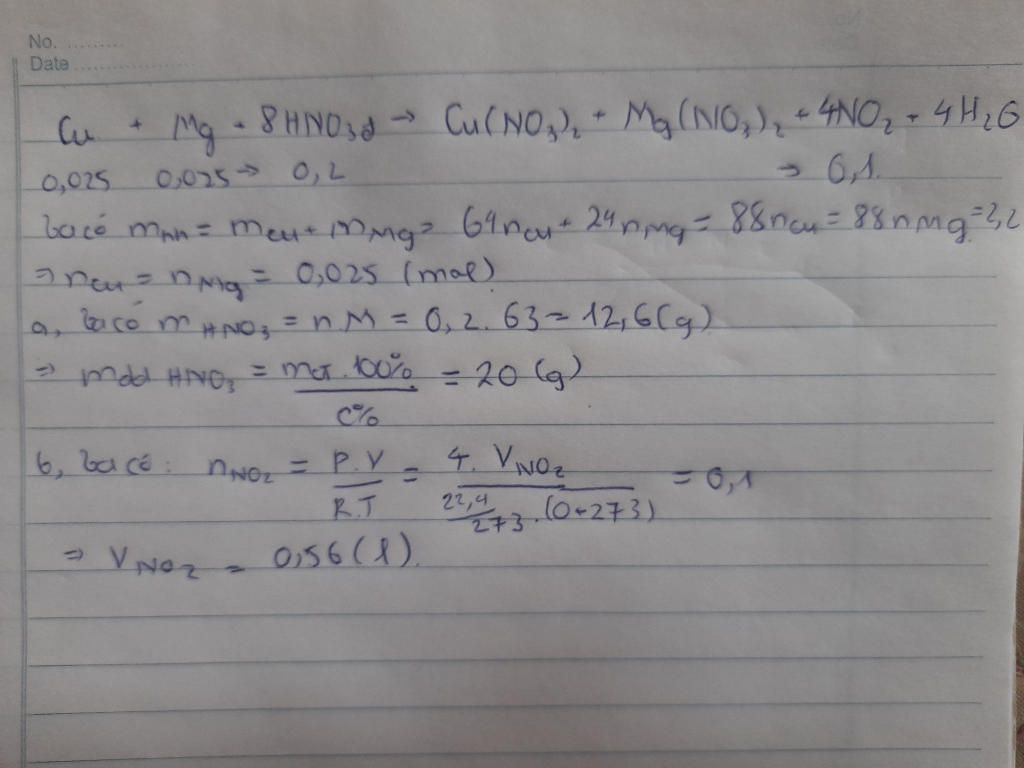 No. ..........
Date ......................
Cu + Mg + 8HNO₃đ → Cu(NO₃)₂ + Mg(NO₃)₂ + 4NO₂ + 4H₂O
0,025 0,025 → 0,2 → 0,1
ta có m_hh = m_Cu + m_Mg = 64n_Cu + 24n_Mg = 88n_Cu = 88n_Mg = 2,2
⇒ n_Cu = n_Mg = 0,025 (mol)
a, ta có m_HNO₃ = n.M = 0,2.63 = 12,6 (g)
⇒ mdd HNO₃ = mct.100% / C% = 20 (g)
b, ta có: n_NO₂ = P.V / R.T = 4.V_NO₂ / 22,4/273.(0+273) = 0,1
⇒ V_NO₂ = 0,56 (l).